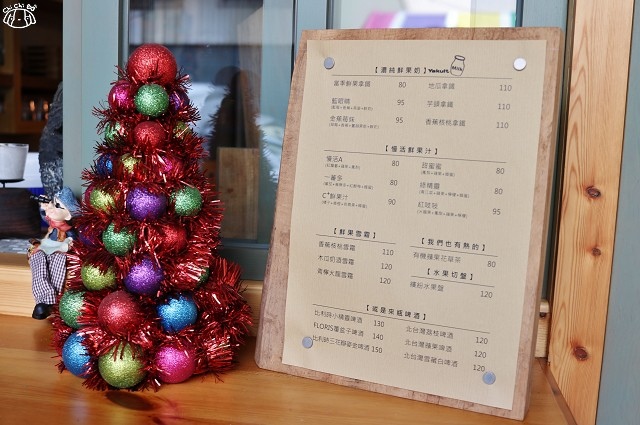 Chi Chi Bo
【濃純鮮果奶】 Yakult Milk
當季鮮果拿鐵 80 地瓜拿鐵 110
藍眼睛 95 芋頭拿鐵 110
金蕉莓妹 95 香蕉核桃拿鐵 110
【慢活鮮果汁】
慢活A 80 甜蜜蜜 80
一番多 80 綠精靈 80
C⁺鮮果汁 90 紅哇哇 95
【鮮果雪霜】 【我們也有熱的】
香蕉核桃雪霜 110 有機蘋果花草茶 80
木瓜奶酒雪霜 120 【水果切盤】
青檸火龍雪霜 120 繽紛水果盤 120
【或是來瓶啤酒】
比利時小精靈啤酒 130 北台灣荔枝啤酒 120
FLORIS覆盆子啤酒 140 北台灣蘋果啤酒 120
比利時三花聯姿金啤酒 150 北台灣雪藏白啤酒 120